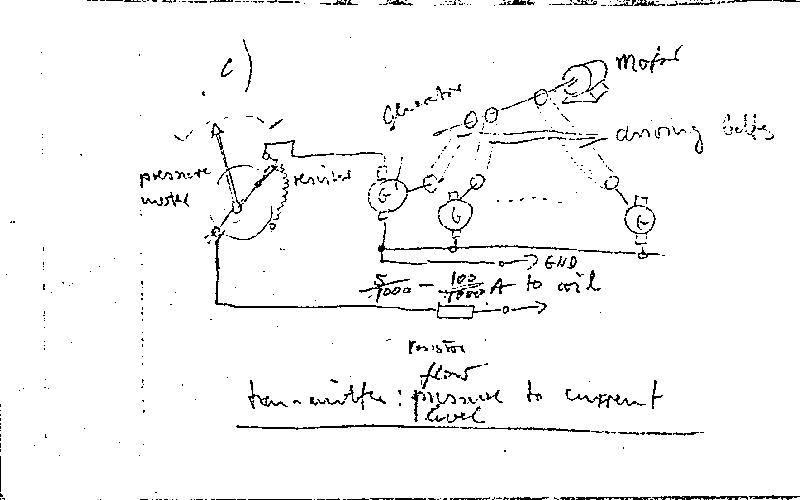 c)
Motor
Generator
driving belts
pressure
meter
resistor
G
G
G
GND
5/1000 – 100/1000 A to coil
resistor
flow
transmitter: pressure to current
level